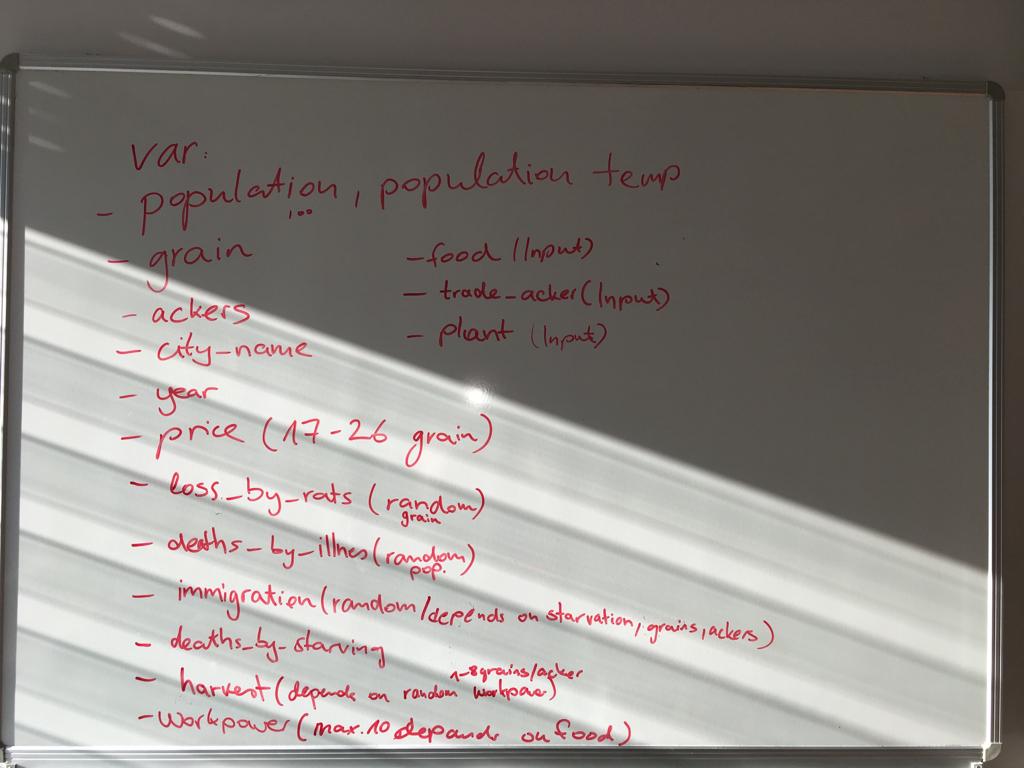 var:
- population, population temp
100
- grain
- ackers
- city_name
- year
- price (17-26 grain)
- loss_by_rats (random)
grain
- deaths_by_illnes (random)
pop.
- immigration (random/depends on starvation, grains, ackers)
- deaths_by_starving
1-8 grains/acker
- harvest (depends on random workpower)
- workpower (max. 10 depends on food)
- food (Input)
- trade_acker (Input)
- plant (Input)